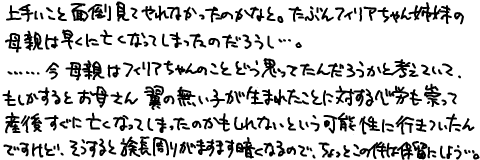 上手いこと面倒見てやれなかったのかなと。たぶんフィリアちゃん姉妹の
母親は早くに亡くなってしまったのだろうし…。
……今母親はフィリアちゃんのことどう思ってたんだろうかと考えていて、
もしかするとお母さん翼の無い子が生まれたことに対する心労も祟って
産後すぐに亡くなってしまったのかもしれないという可能性に行きついたん
ですけど、そうすると族長周りがますます暗くなるので、ちょっとこの件は保留にしよう…。